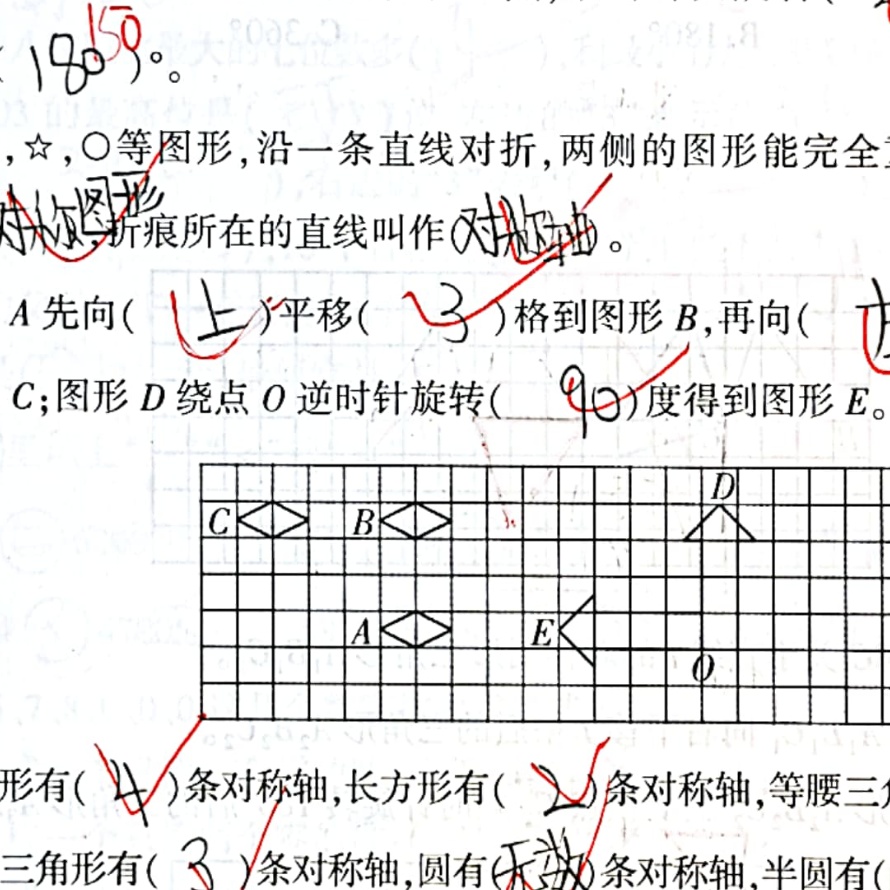 (180 150)°。
,☆,○等图形,沿一条直线对折,两侧的图形能完全
对称图形,折痕所在的直线叫作(对称轴)。
A先向(上)平移(3)格到图形B,再向(
C;图形D绕点O逆时针旋转(90)度得到图形E。
D
C B
A E
O
形有(4)条对称轴,长方形有(2)条对称轴,等腰三
三角形有(3)条对称轴,圆有(无数)条对称轴,半圆有(